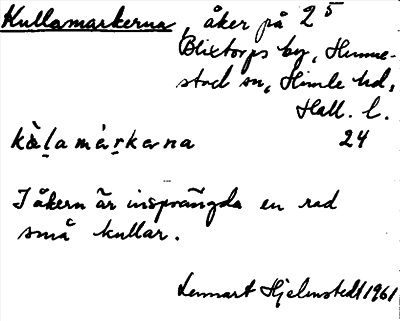 Kullamarkerna, åker på 2⁵
Blixtorps by, Hunne-
stad sn, Himle hd,
Hall. l.
kàl̥a már̥kərna 24
I åkern är insprängda en rad
små kullar.
Lennart Hjelmstedt 1961